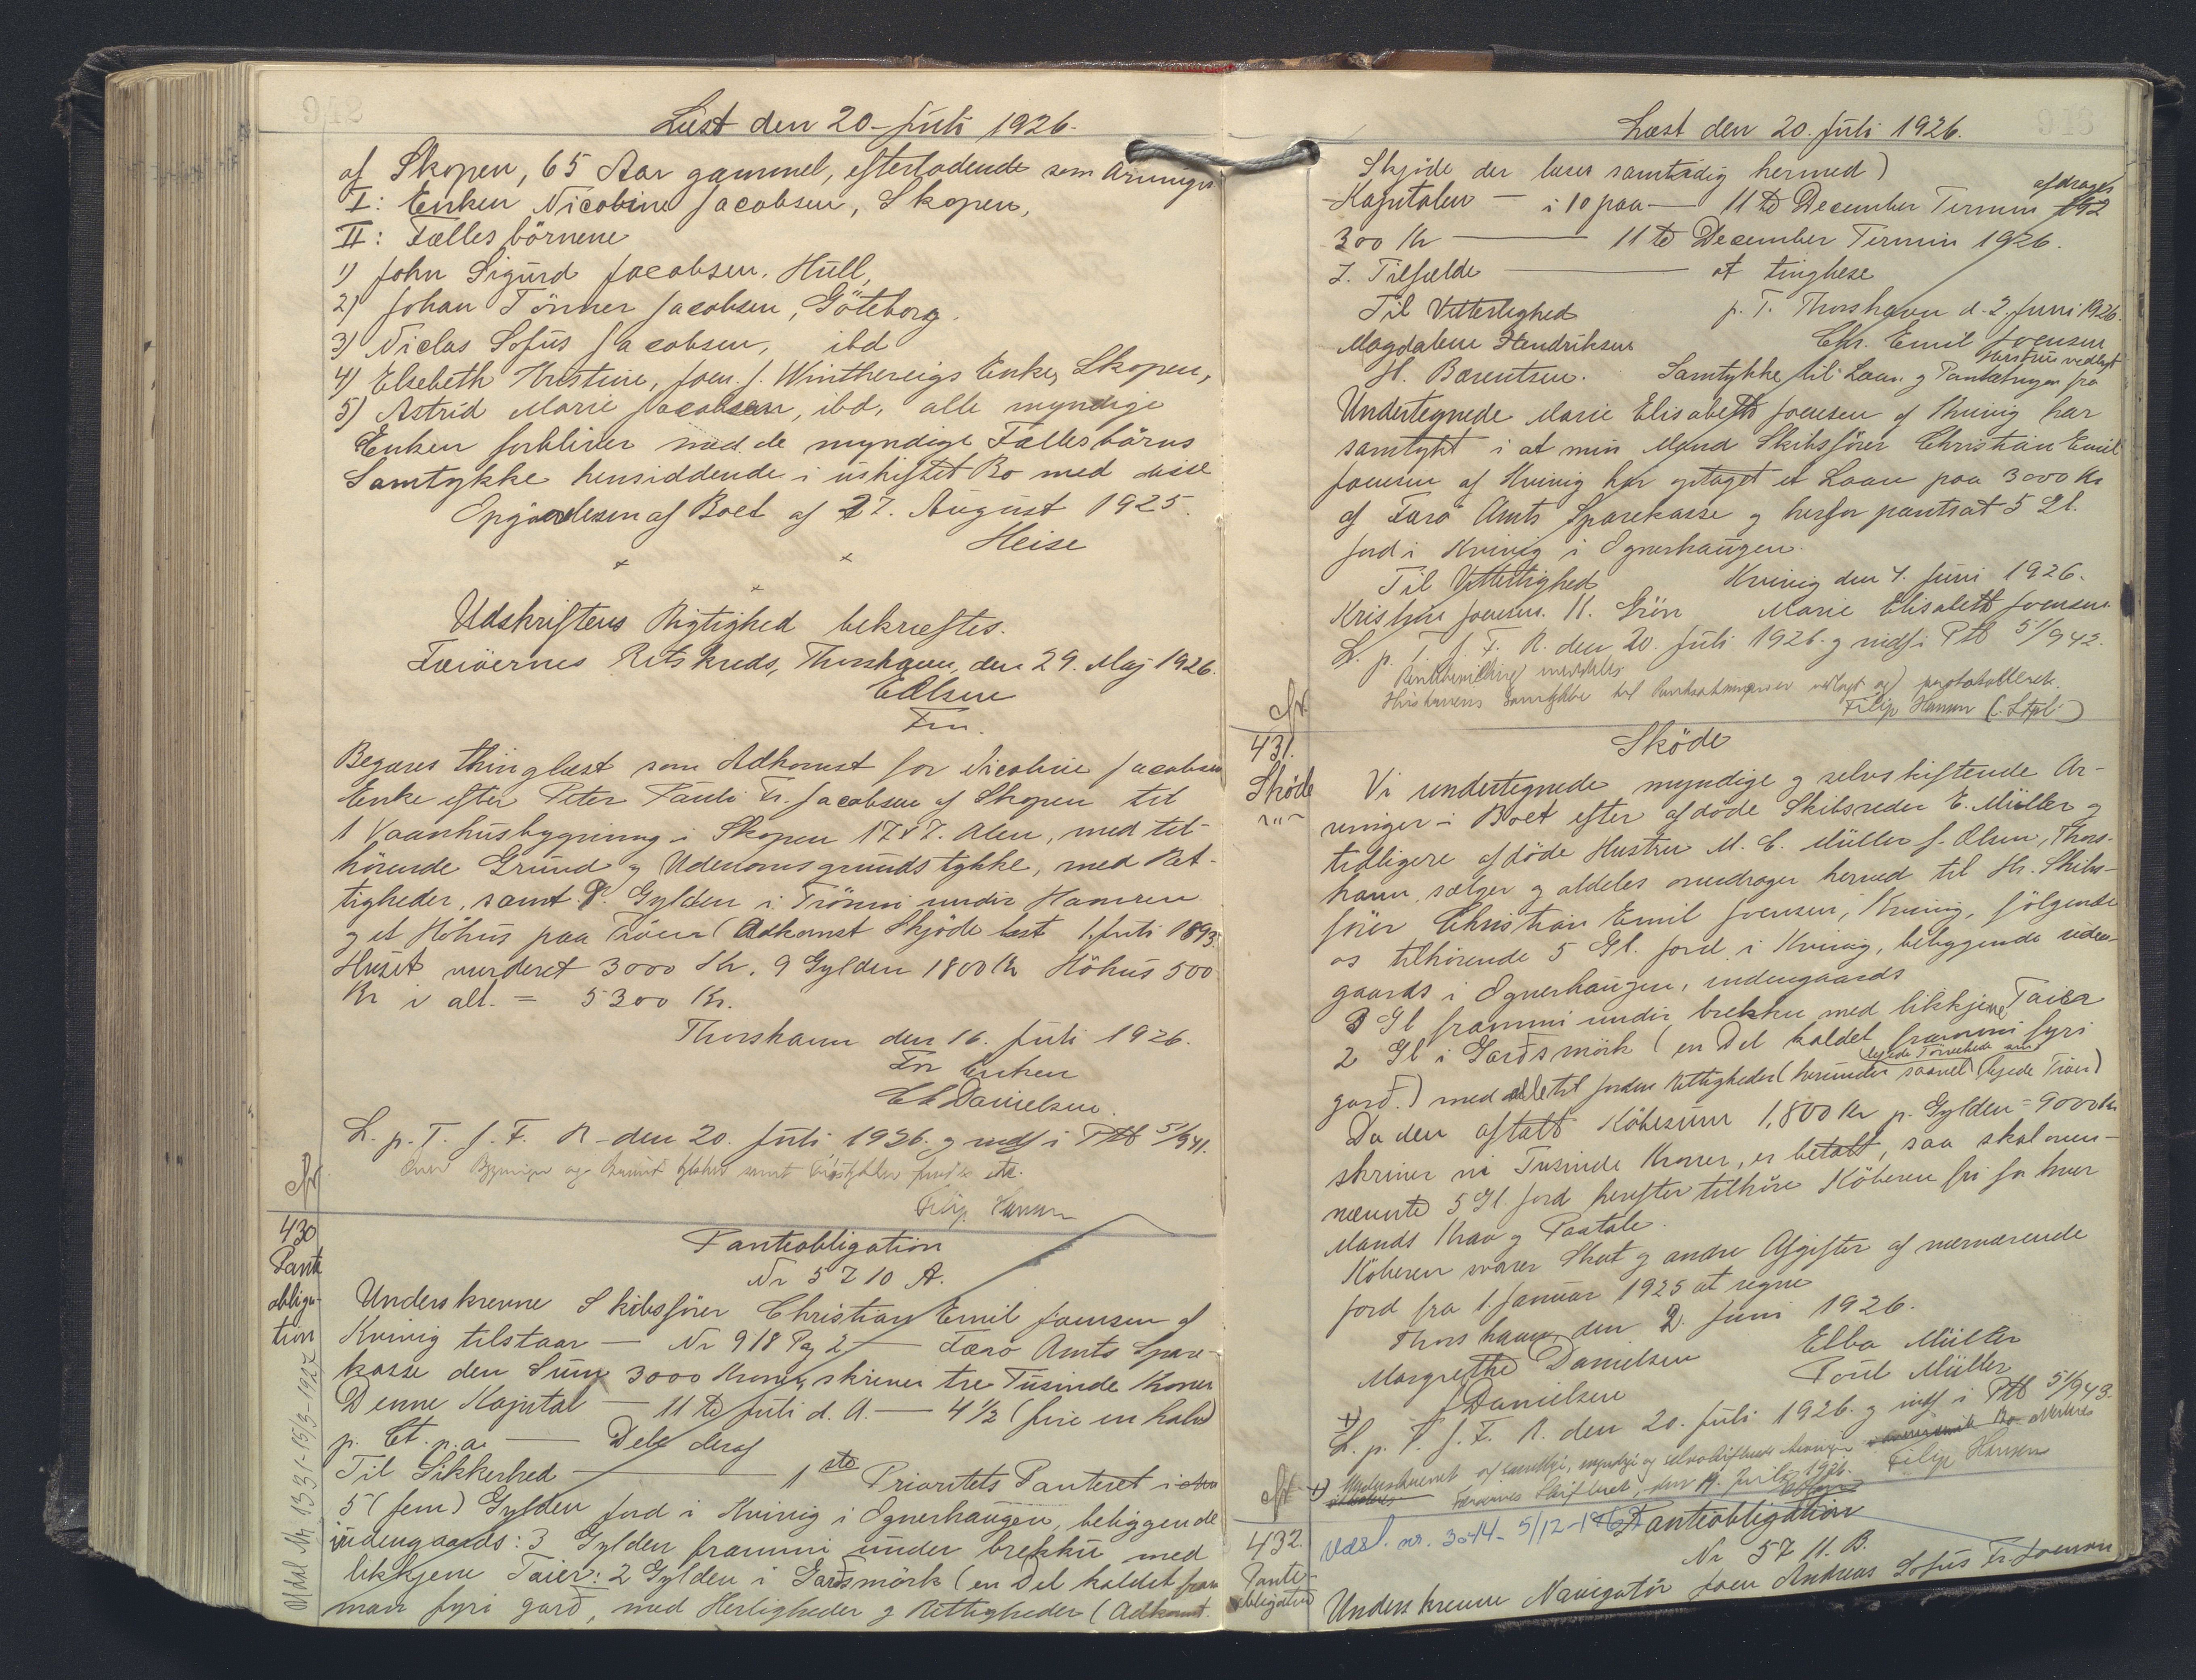 Læst den 20 - Juli 1926.
af Skopen, 65 Aar gammel, efterladende som Arvinger
I: Enken Nicobine Jacobsen, Skopen,
II: Fællesbörnene
1) John Sigurd Jacobsen, Hull,
2) Johan Tönner Jacobsen, Göteborg.
3) Niclas Sofus Jacobsen, ibd
4) Elsebeth Kristine, Joen. J. Winthereigs Enke, Skopen,
5) Astrid Marie Jacobsen, ibd, alle myndige
Enken forbliver med de myndige Fællesbörns
Samtykke hensiddende i uskiftet Bo med disse
Opgörelsen af Boet af 27. August 1925.
Heise
Udskriftens Rigtighed bekræftes.
Færöernes Retskreds, Thorshavn, den 29. Maj 1926.
EOlsen
Fm.
Begæres thinglæst som Adkomst for Nicobine Jacobsen
Enke efter Peter Pauli Fr. Jacobsen af Skopen til
1 Vaanhusbygning i Skopen 17 x 7. Alen, med til-
hörende Grund og Udenomsgrundstykke, med Ret-
tigheder, samt 9. Gylden i Trönni undir Hamren
og et Höhus paa Tróen (Adkomst Skjöde læst 1 Juli 1893.
Huset vurderet 3000 Kr. 9 Gylden 1800 Kr Höhus 500
Kr i alt. = 5300 Kr.
Thorshavn den 16. Juli 1926.
For Enken
C C Danielsen.
L. p. T. f. F. R. den 20. Juli 1926. og indf i Ptb 51/941.
Filip Hansen
cfr
430
Pante
obliga-
tion
Aflæst Nr. 1331-15/3-1927
Panteobligation
Nr 5710 A.
Underskrevne Skibsförer Christian Emil Joensen af
Kvivig tilstaar — Nr 918 Pag 2 — Færö Amts Spare-
kasse den Sum 3000 Kroner, skriver tre Tusinde Kroner
Denne Kapital — 11 te Juli d. A. — 4 1/2 (fire en halv)
p. Ct. p. a. — Dele deraf
Til Sikkerhed — 1 ste Prioritets Panteret i
5 (fem) Gylden Jord i Kvivig i Ognerhaugen, beliggende
udengaards: 3 Gylden frammi under brekku med
likkjene Taier: 2 Gylden i Garðsmörk (en Del kaldet fram
man fyri garð, med Herligheder og Rettigheder (Adkomst
Læst den 20. Juli 1926.
Skjöde der læses samtidig hermed)
Kapitalen — i 10 paa — 11 te December Termin afdrages
300 Kr — 11 te December Termin 1926.
I. Tilfælde — at tinglæse
Til Vitterlighed p. T. Thorshavn d. 2. Juni 1926.
Magdalene Hendriksen Chr. Emil Joensen
H. Barentsen. Samtykke til Laan og Pantsætningen fra Hustru vedlagt
Undertegnede Marie Elisabeth Joensen af Kvivig har
samtykt i at min Mand Skibsförer Christian Emil
Joensen af Kvivig har optaget et Laan paa 3000 Kr
af Færö Amts Sparekasse og herfor pantsat 5 Gl.
Jord i Kvivig i Ognerhaugen.
Til Vitterlighed Kvivig den 4. Juni 1926.
Kristine Joensen. H. Grön Marie Elisabeth Joensen
L. p. T. f. F. R. den 20. Juli 1926. og indf i Ptb 51/942.
Hustruens Samtykke til Pantsætningen vedlagt og protokolleret.
Filip Hansen
cfr
431.
Sköde
Sköde
Vi undertegnede myndige og selvskiftende Ar-
vinger i Boet efter afdöde Skibsreder E. Müller og
tidligere afdöde Hustru M. C. Müller f. Olsen, Thors-
havn, sælger og aldeles overdrager herved til Hr. Skibs-
förer Christian Emil Joensen, Kvivig, fölgende
os tilhörende 5 Gl. Jord i Kvivig, beliggende uden-
gaards i Ognerhaugen, indengaards
3 Gl frammi undir brekku med likkjene Taier
2 Gl i Garðsmörk (en Del kaldet frammi fyri
garð.) med alle til Jorden Rettigheder (herunder saavel (lejede Tröer)
Da den aftalt Köbesum 1,800 Kr p. Gylden = 9000 Kr
skriver ni Tusinde Kroner, er betalt, saa skal oven-
nævnte 5 Gl. Jord herefter tilhöre Köberen fri for hver
Mands Krav og Paatale.
Köberen svarer Skat og andre Afgifter af nærværende
Jord fra 1. Januar 1925 at regne
Thorshavn, den 2. Juni 1926.
Margrethe Danielsen Elba Müller
J Danielsen Poul Müller
L. p. T. f. F. R. den 20. Juli 1926. og indf i Ptb 51/943.
Underskrevet af samtlige, myndige og selvskiftende Arvinger
Færöernes Skifteret, den 19. Juli 1926. Filip Hansen
cfr
432.
Pante-
obligation
Væsl. nr. 3044 - 5/12-1967
Panteobligation
Nr 5711. B.
Underskrevne Navigatör Joen Andreas Sofus Fr. Joensen